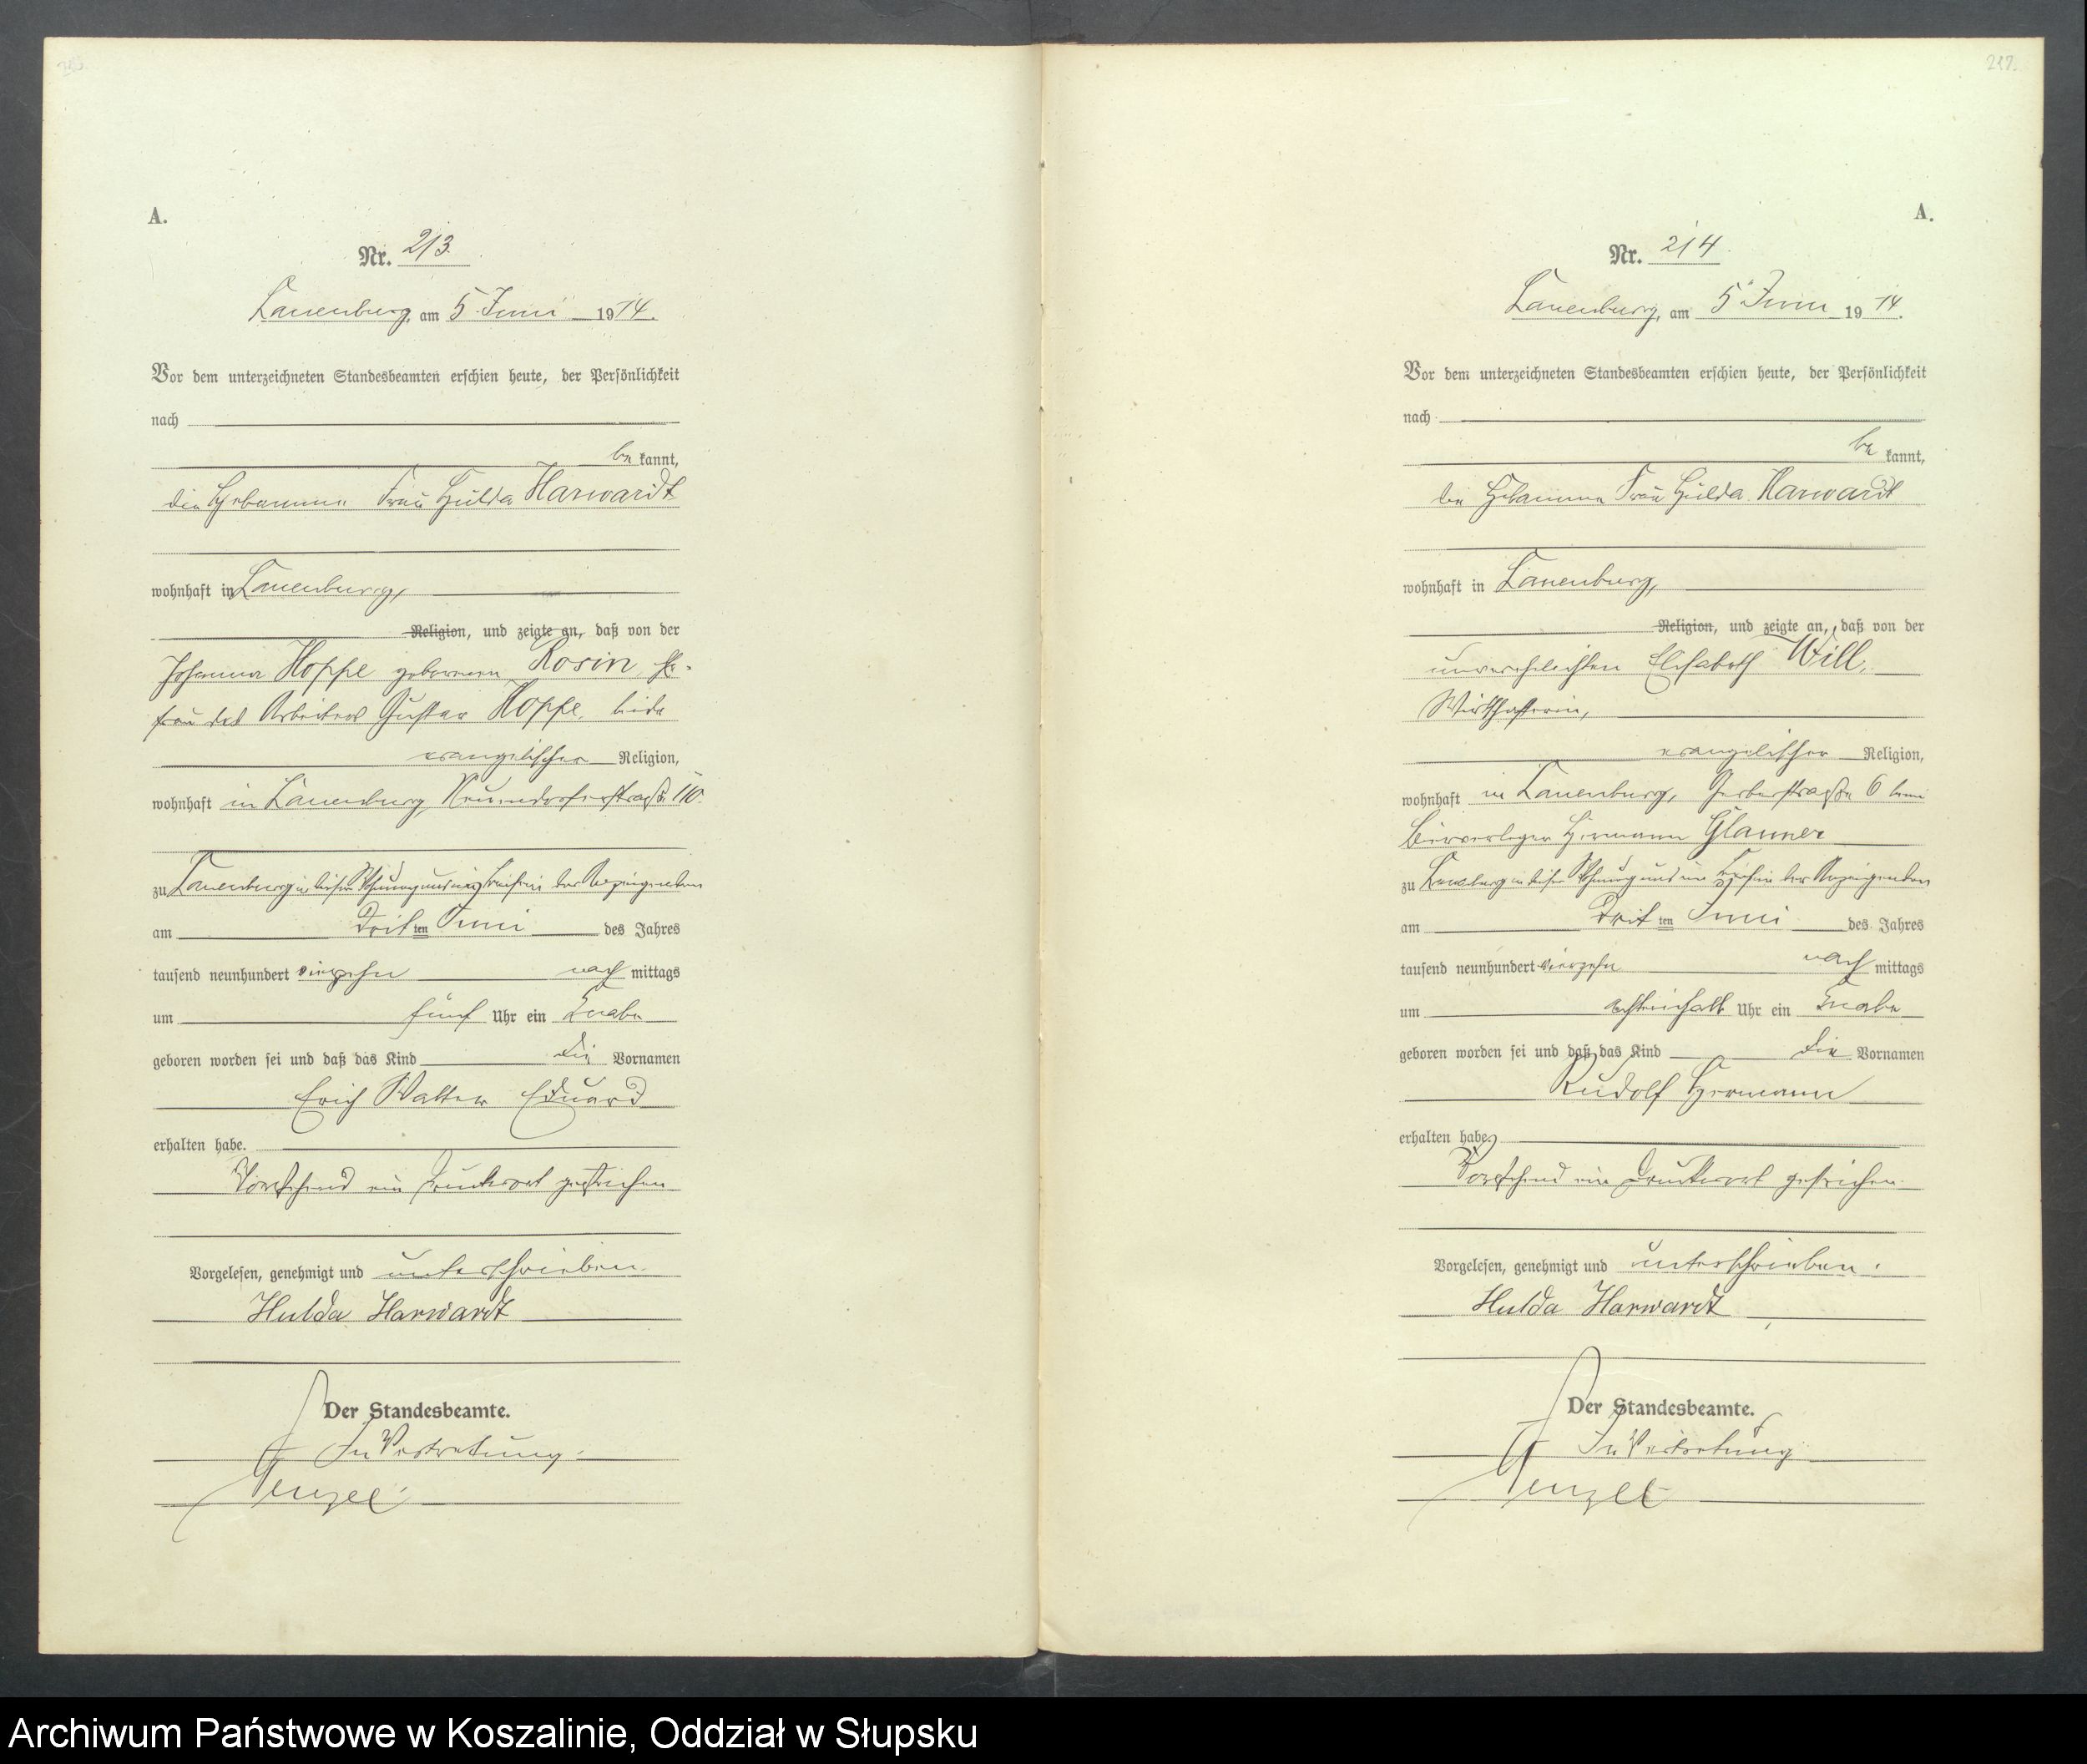 A.
Nr. 213.
Lauenburg, am 5. Juni 1914.
Vor dem unterzeichneten Standesbeamten erschien heute, der Persönlichkeit
nach
be kannt,
die Hebamme Frau Hulda Harwardt
wohnhaft in Lauenburg,
Religion, und zeigte an, daß von der
Johanna Hoppe geborenen Rosin, Ehe-
frau des Arbeiters Gustav Hoppe, beide
evangelischer Religion,
wohnhaft in Lauenburg, Neuendorferstraße 110.
zu Lauenburg in dieser Wohnung und in Beisein der Anzeigenden
am Dritten Juni des Jahres
tausend neunhundert vierzehn nach mittags
um fünf Uhr ein Knabe
geboren worden sei und daß das Kind die Vornamen
Erich Walter Eduard
erhalten habe.
Vorstehend ein Druckwort gestrichen
Vorgelesen, genehmigt und unterschrieben.
Hulda Harwardt
Der Standesbeamte.
In Vertretung.
217.
A.
Nr. 214.
Lauenburg, am 5. Juni 1914.
Vor dem unterzeichneten Standesbeamten erschien heute, der Persönlichkeit
nach
be kannt,
die Hebamme Frau Hulda Harwardt
wohnhaft in Lauenburg,
Religion, und zeigte an, daß von der
unverehelichten Elisabeth Will,
Wirtschafterin,
evangelischer Religion,
wohnhaft in Lauenburg, Gerberstraße 6 beim
Bierverleger Hermann Glauner
zu Lauenburg in dieser Wohnung und im Beisein der Anzeigenden
am Dritten Juni des Jahres
tausend neunhundert vierzehn nach mittags
um achteinhalb Uhr ein Knabe
geboren worden sei und daß das Kind die Vornamen
Rudolf Hermann
erhalten habe.
Vorstehend ein Druckwort gestrichen.
Vorgelesen, genehmigt und unterschrieben.
Hulda Harwardt
Der Standesbeamte.
In Vertretung
Archiwum Państwowe w Koszalinie, Oddział w Słupsku